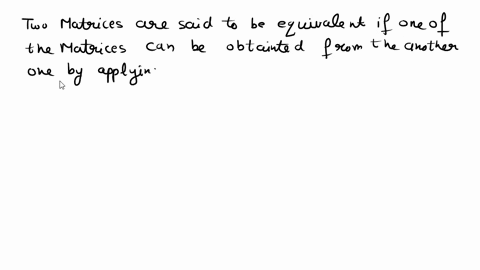 Two Matrices are said to be equivalent if one of
the Matrices can be obtainted from the another
one by applyin.